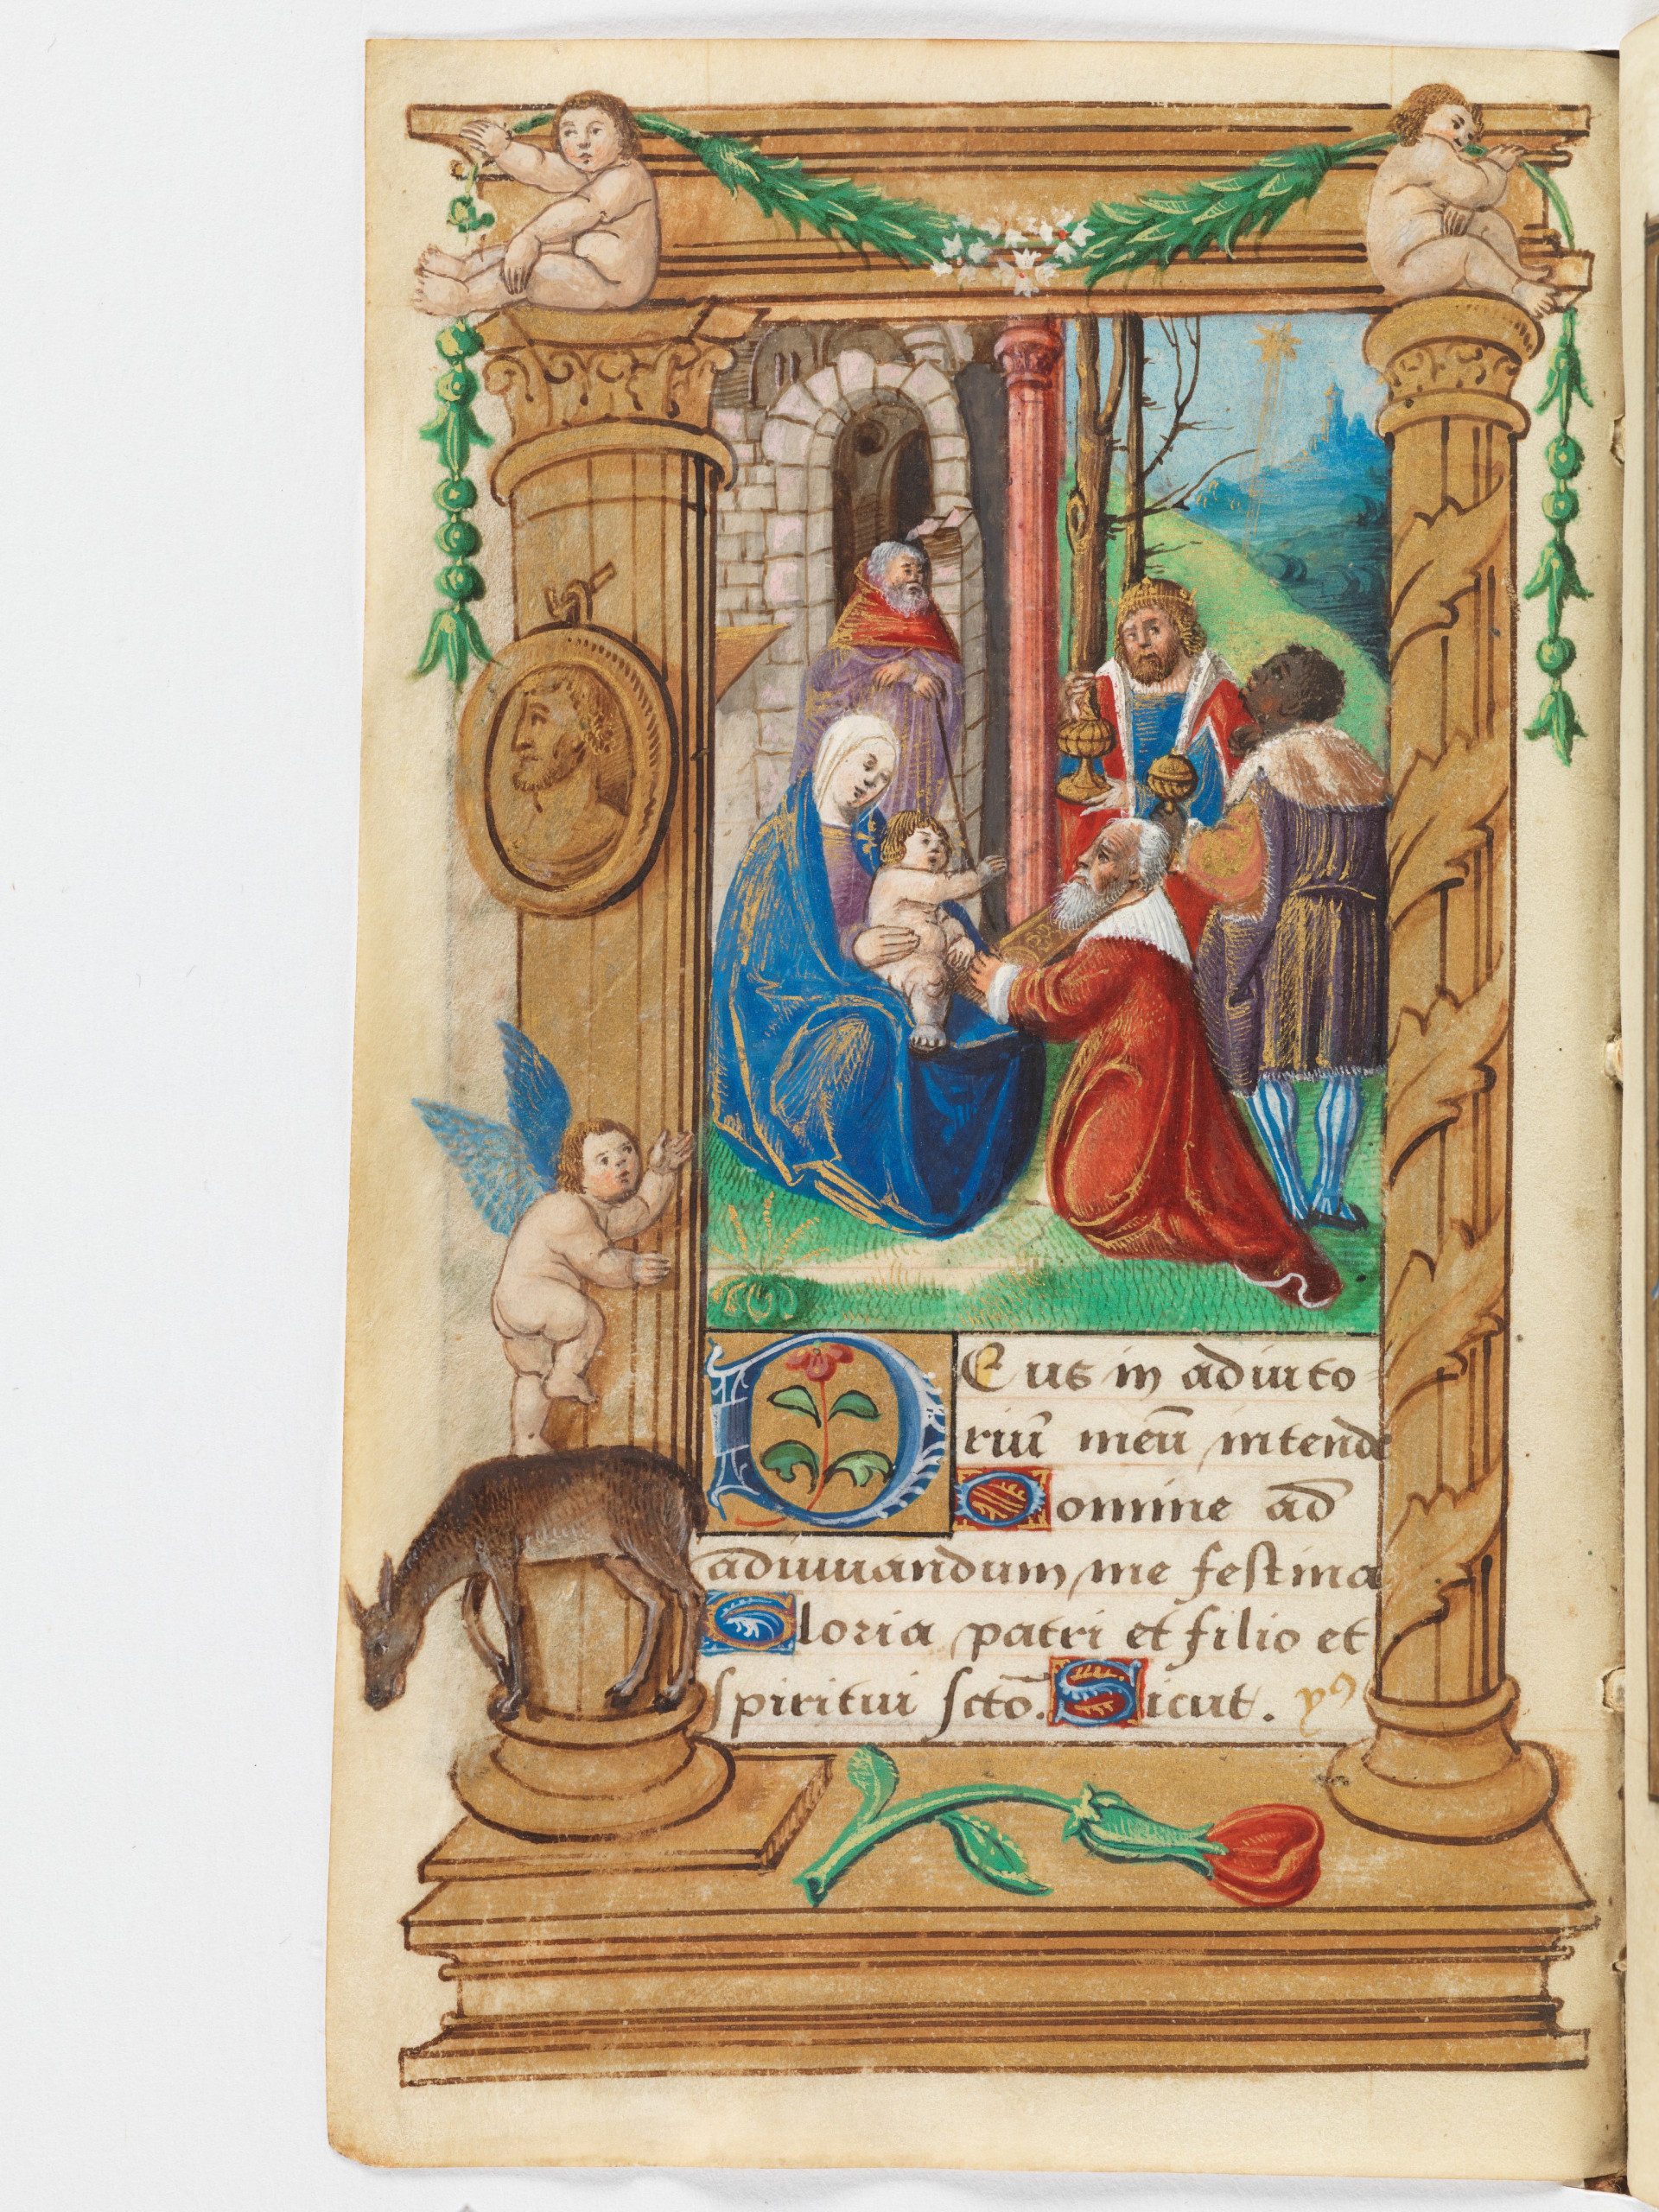 DEus in adiuto
riū meū intende
Domine ad
adiuuandum me festina
Gloria patri et filio et
spiritui scto. Sicut. yꝰ